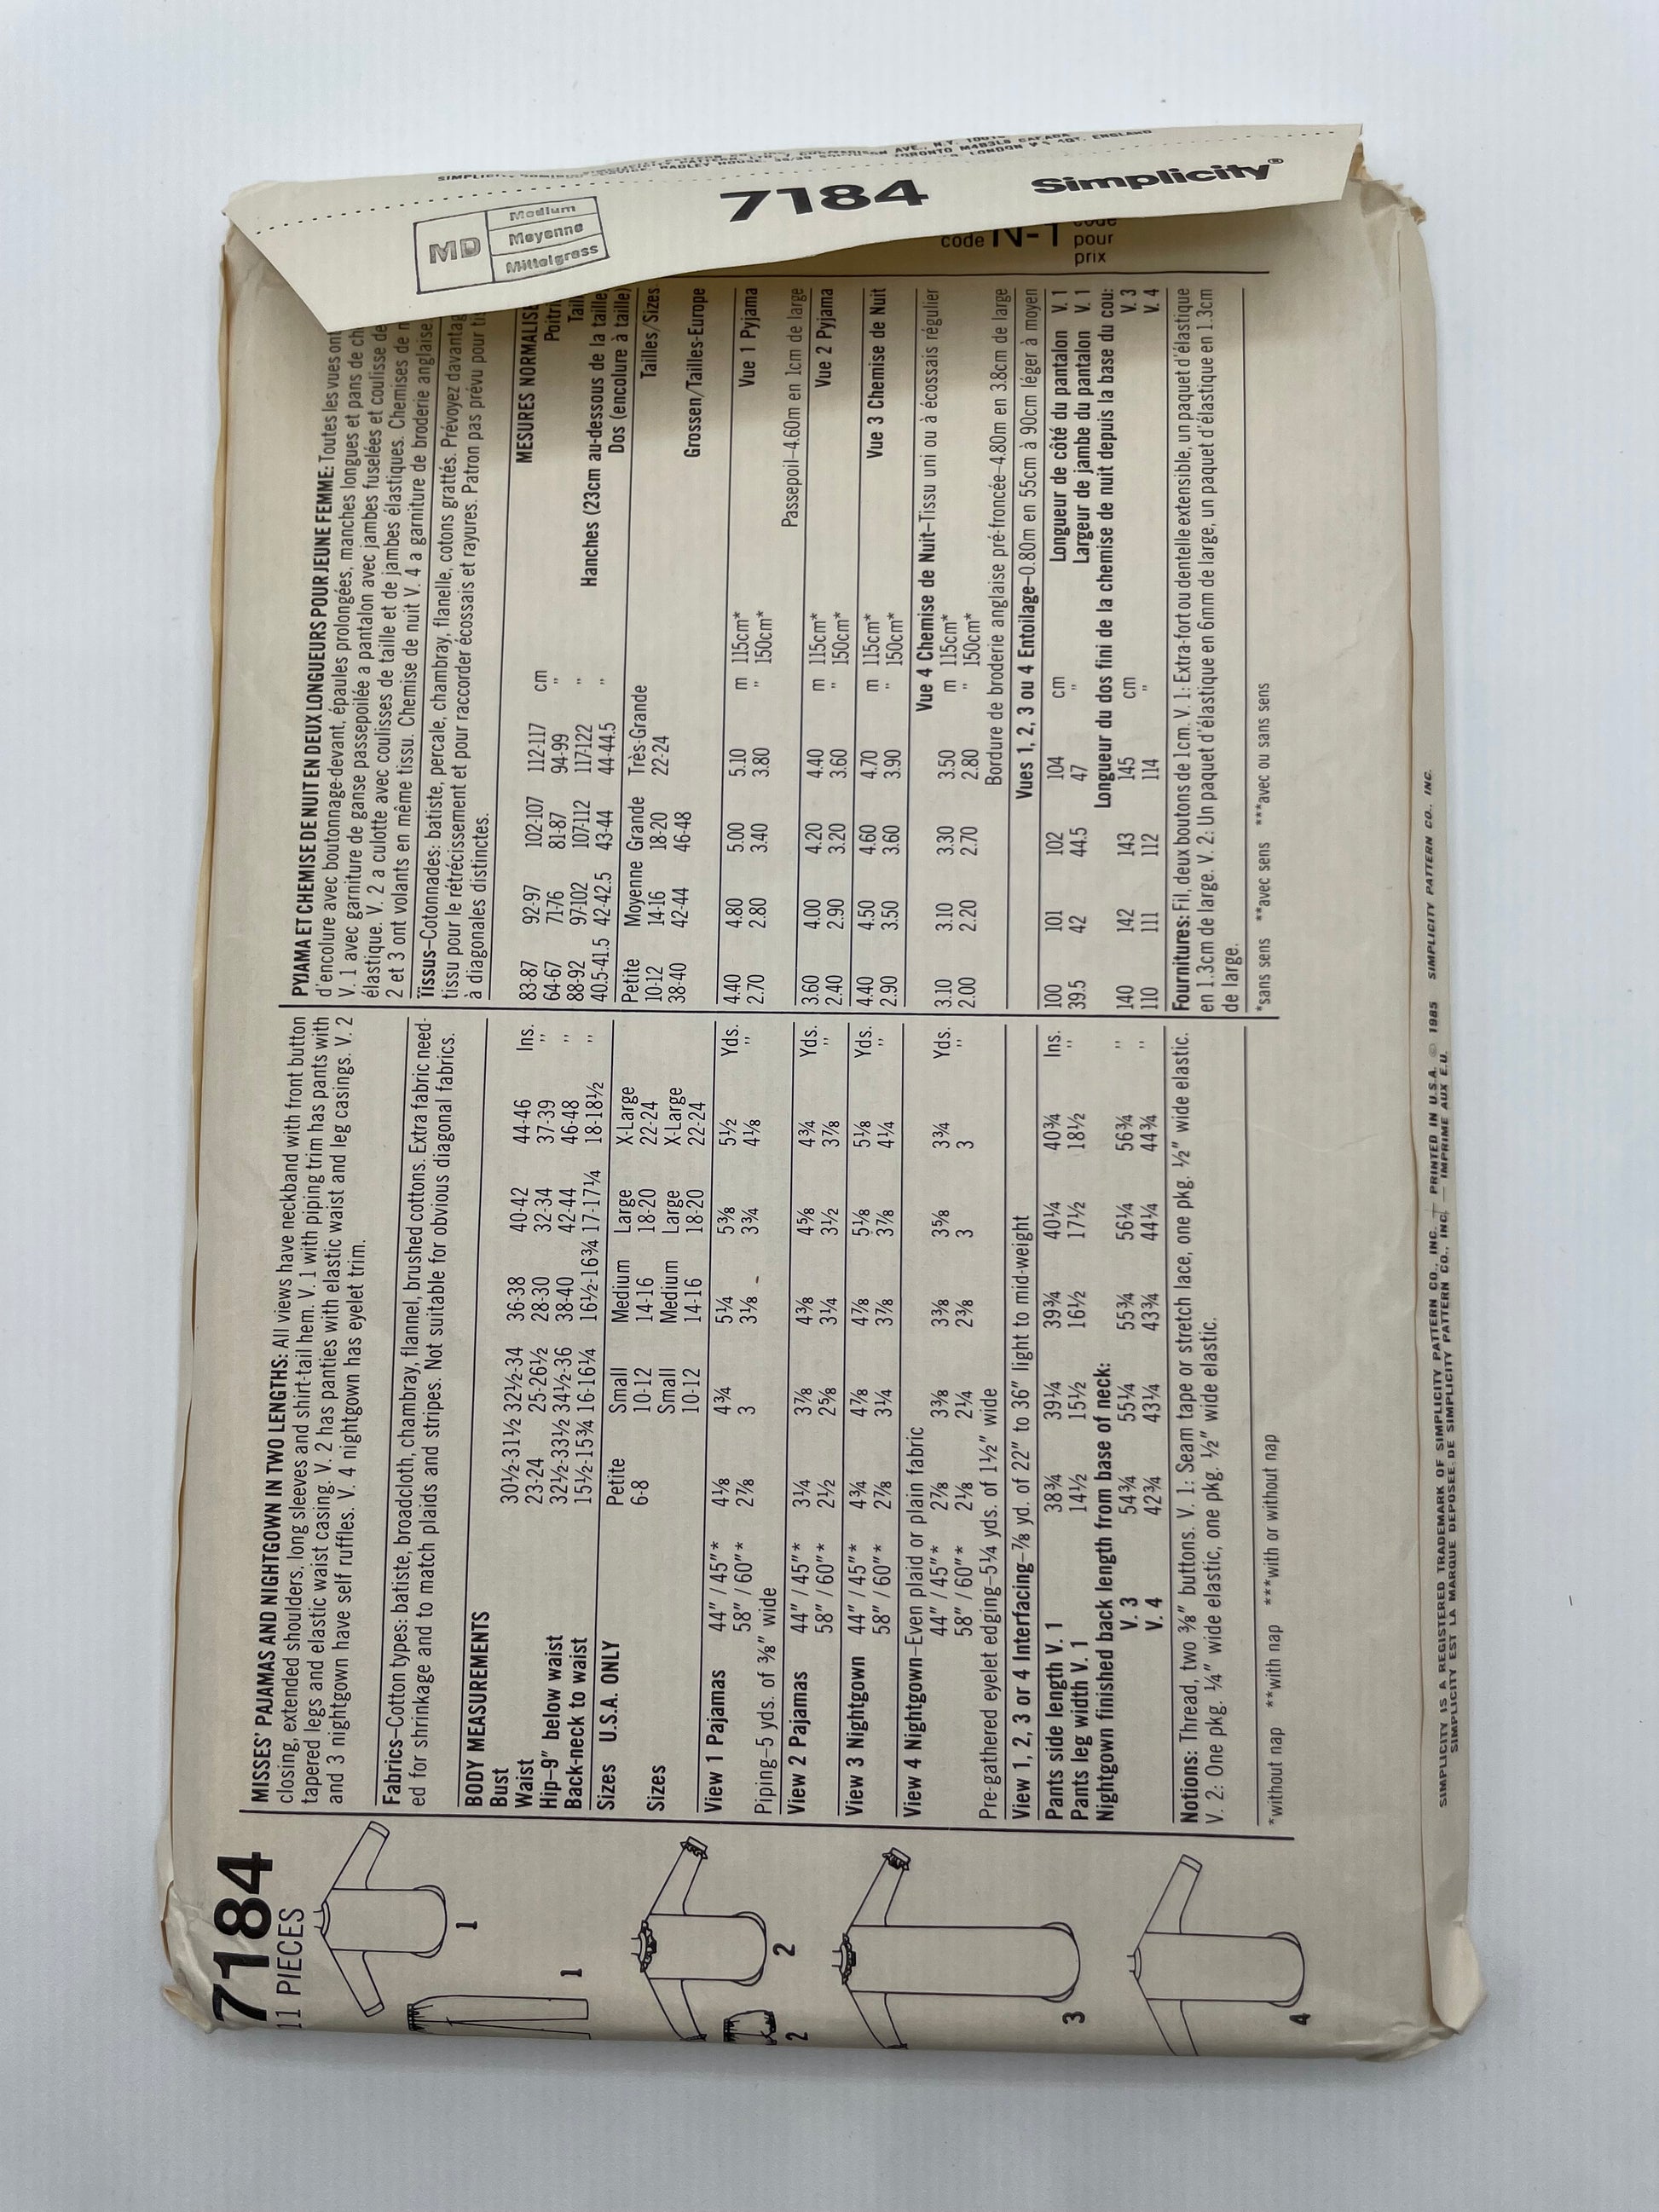 SIMPLICITY
7184
Simplicity®
MD
Medium
Moyenne
Mittelgross
code N-1
pour
prix
7184
11 PIECES
1
1
2
2
3
4
MISSES' PAJAMAS AND NIGHTGOWN IN TWO LENGTHS: All views have neckband with front button
closing, extended shoulders, long sleeves and shirt-tail hem. V. 1 with piping trim has pants with
tapered legs and elastic waist casing. V. 2 has panties with elastic waist and leg casings. V. 2
and 3 nightgown have self ruffles. V. 4 nightgown has eyelet trim.
Fabrics–Cotton types: batiste, broadcloth, chambray, flannel, brushed cottons. Extra fabric need-
ed for shrinkage and to match plaids and stripes. Not suitable for obvious diagonal fabrics.
BODY MEASUREMENTS
Bust 30½-31½ 32½-34 36-38 40-42 44-46 Ins.
Waist 23-24 25-26½ 28-30 32-34 37-39 "
Hip–9" below waist 32½-33½ 34½-36 38-40 42-44 46-48 "
Back-neck to waist 15½-15¾ 16-16¼ 16½-16¾ 17-17¼ 18-18½ "
Sizes U.S.A. ONLY Petite Small Medium Large X-Large
6-8 10-12 14-16 18-20 22-24
Sizes Small Medium Large X-Large
10-12 14-16 18-20 22-24
View 1 Pajamas 44" / 45"* 4⅛ 4¾ 5¼ 5⅜ 5½ Yds.
58" / 60"* 2⅞ 3 3⅛ 3¾ 4⅛ "
Piping–5 yds. of ⅜" wide
View 2 Pajamas 44" / 45"* 3¼ 3⅞ 4⅜ 4⅝ 4¾ Yds.
58" / 60"* 2½ 2⅝ 3¼ 3½ 3⅞ "
View 3 Nightgown 44" / 45"* 4¾ 4⅞ 4⅞ 5⅛ 5⅛ Yds.
58" / 60"* 2⅞ 3¼ 3⅞ 3⅞ 4¼ "
View 4 Nightgown–Even plaid or plain fabric
44" / 45"* 2⅞ 3⅜ 3⅜ 3⅝ 3¾ Yds.
58" / 60"* 2⅛ 2¼ 2⅜ 3 3 "
Pre-gathered eyelet edging–5¼ yds. of 1½" wide
View 1, 2, 3 or 4 Interfacing–⅞ yd. of 22" to 36" light to mid-weight
Pants side length V. 1 38¾ 39¼ 39¾ 40¼ 40¾ Ins.
Pants leg width V. 1 14½ 15½ 16½ 17½ 18½ "
Nightgown finished back length from base of neck:
V. 3 54¾ 55¼ 55¾ 56¼ 56¾ "
V. 4 42¾ 43¼ 43¾ 44¼ 44¾ "
Notions: Thread, two ⅜" buttons. V. 1: Seam tape or stretch lace, one pkg. ½" wide elastic.
V. 2: One pkg. ¼" wide elastic, one pkg. ½" wide elastic.
*without nap **with nap ***with or without nap
PYJAMA ET CHEMISE DE NUIT EN DEUX LONGUEURS POUR JEUNE FEMME: Toutes les vues ont
d'encolure avec boutonnage-devant, épaules prolongées, manches longues et pans de
V. 1 avec garniture de ganse passepoilée a pantalon avec jambes fuselées et coulisse
élastique. V. 2 a culotte avec coulisses de taille et de jambes élastiques. Chemises de
2 et 3 ont volants en même tissu. Chemise de nuit V. 4 a garniture de broderie anglaise.
Tissus–Cotonnades: batiste, percale, chambray, flanelle, cotons grattés. Prévoyez
tissu pour le rétrécissement et pour raccorder écossais et rayures. Patron pas prévu pour
à diagonales distinctes.
MESURES
83-87 92-97 102-107 112-117 cm
64-67 71-76 81-87 94-99 "
88-92 97-102 107-112 117-122 " Hanches (23cm au-dessous de la taille)
40.5-41.5 42-42.5 43-44 44-44.5 " Dos (encolure à taille)
Petite Moyenne Grande Très-Grande Tailles/Sizes
10-12 14-16 18-20 22-24
38-40 42-44 46-48 Grossen/Tailles-Europe
4.40 4.80 5.00 5.10 m 115cm* Vue 1 Pyjama
2.70 2.80 3.40 3.80 " 150cm*
Passepoil–4.60m en 1cm de large
3.60 4.00 4.20 4.40 m 115cm* Vue 2 Pyjama
2.40 2.90 3.20 3.60 " 150cm*
4.40 4.50 4.60 4.70 m 115cm* Vue 3 Chemise de Nuit
2.90 3.50 3.60 3.90 " 150cm*
Vue 4 Chemise de Nuit–Tissu uni ou à écossais régulier
3.10 3.10 3.30 3.50 m 115cm*
2.00 2.20 2.70 2.80 " 150cm*
Bordure de broderie anglaise pré-froncée–4.80m en 3.8cm de large
Vues 1, 2, 3 ou 4 Entoilage–0.80m en 55cm à 90cm léger à moyen
100 101 102 104 cm Longueur de côté du pantalon V. 1
39.5 42 44.5 47 " Largeur de jambe du pantalon V. 1
Longueur du dos fini de la chemise de nuit depuis la base du cou:
140 142 143 145 cm V. 3
110 111 112 114 " V. 4
Fournitures: Fil, deux boutons de 1cm. V. 1: Extra-fort ou dentelle extensible, un paquet d'élastique
en 1.3cm de large. V. 2: Un paquet d'élastique en 6mm de large, un paquet d'élastique en 1.3cm
de large.
*sans sens **avec sens ***avec ou sans sens
SIMPLICITY IS A REGISTERED TRADEMARK OF SIMPLICITY PATTERN CO., INC. — PRINTED IN U.S.A. © 1985 SIMPLICITY PATTERN CO., INC.
SIMPLICITY EST LA MARQUE DEPOSEE DE SIMPLICITY PATTERN CO., INC. — IMPRIME AUX E.U.